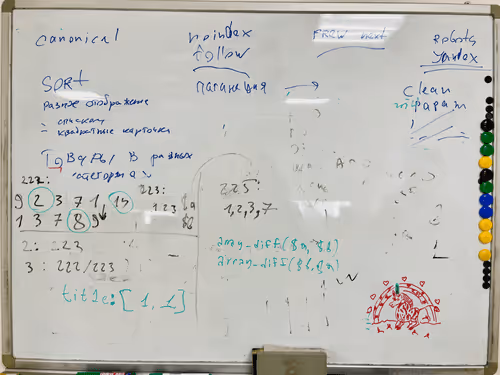 canonical
noindex
follow
prev next
Robots
Yandex
SORT
разное отображение
- списком
- квадратные карточки
пагинация →
Clean
param
Товары в разных
категориях
222:
9 2 3 7 1, 15
1 3 7 8 9
223:
1 2 3
225:
1, 2, 3, 7
2: 223
3: 222/223
title: [1, 1]
array_diff($a, $b)
array_diff($b, $a)